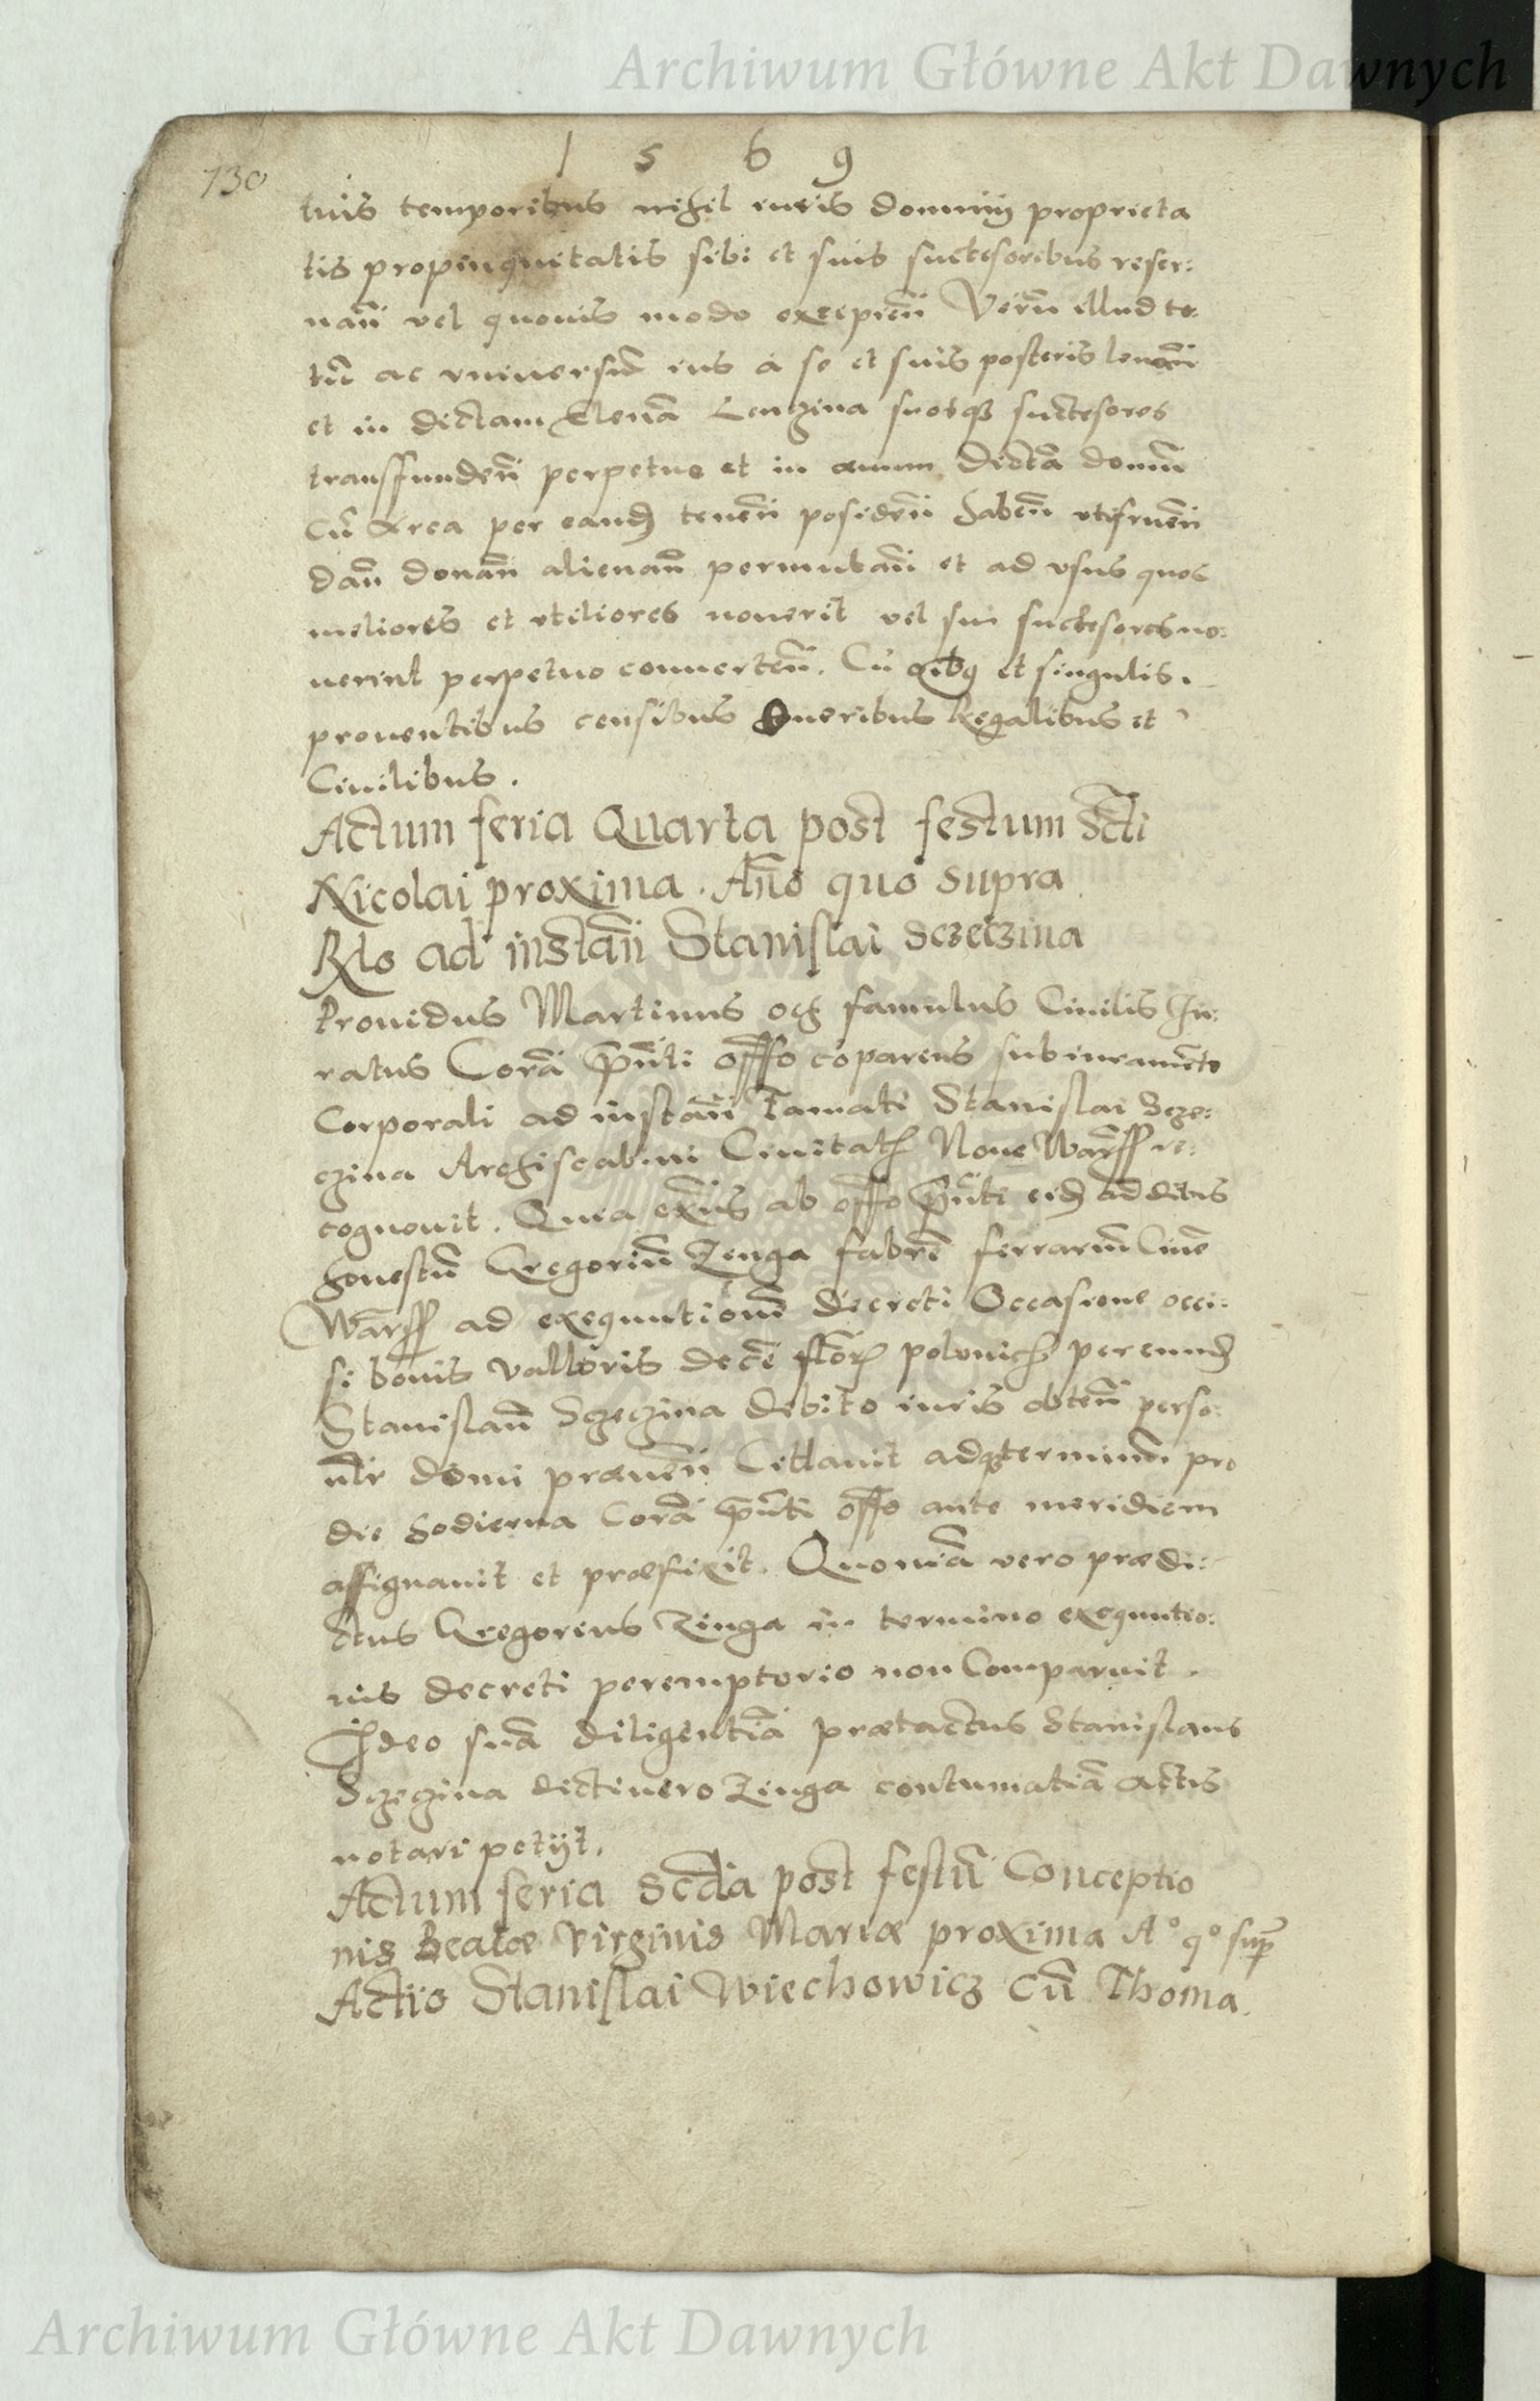 Archiwum Główne Akt Dawnych
1 5 6 9
730
tuis temporibus nihil iuris dominij proprieta
tis propinquitatis sibi et suis suctesoribus reser:
uan̄ vel quouis modo excipien̄ Verū illud to:
tū ac vniuersū ius a se et suis posteris leuan̄
et in dictam Elenā Lengzina suosqꝫ suctesores
transffunden̄ perpetuo et in æuum dictā domū
Cū Area per eandꝫ tenen̄ posiden̄ haben̄ vtifruen̄
dan̄ donan̄ alienan̄ permutan̄ et ad vsus quos
meliores et vtiliores nouerit vel sui suctesores no:
uerint perpetuo conuerten̄. Cū oībꝯ et singulis.
prouentibus censibus Oneribus Regalibus et
Ciuilibus.
Actum feria Quarta post festum Scti
Nicolai proxima. Año quo supra
Rlo ad instan̄ Stanislai Sczeczina
Prouidus Martinus och famulus Ciuilis Iu:
ratus Corā pn̄ti offo cōparens sub iuramēto
Corporali ad instan̄ Famati Stanislai Scze:
czina Archiscabini Ciuitatꝭ Noue Warss re:
cognouit. Quia ex̄ns ab offo pn̄ti eidꝫ additus
honestū Gregoriū Zenga fabrū ferrariū Ciuē
Warss ad exequutionē decreti Occasione occi:
si bouis valloris decē florꝭ polonichꝭ per eundꝫ
Stanislaū Sczeczina debito iuris obten̄ perso:
nlr domi præuen̄ Cittauit adqꝫ terminū pro
die hodierna Corā pn̄ti offo ante meridiem
assignauit et præfixit. Quoniā vero prædi:
ctus Gregorius Zinga in termino exequutio:
nis decreti peremptorio non Comparuit.
Ideo suā diligentiā prætactus Stanislaus
Sczeczina dicti vero Zenga contumatiā actis
notari petijt.
Actum feria Scda post festū Conceptio
nis Beatæ Virginis Mariæ proxima A° q° sup
Actio Stanislai Wiechowicz cū Thoma.
Archiwum Główne Akt Dawnych